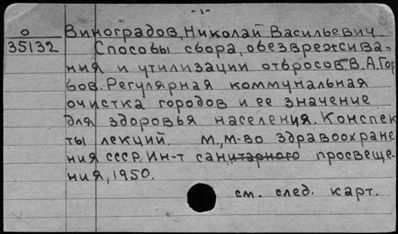 - 1 -
о Виноградов, Николай Васильевич
35132 Способы сбора, обезврежива-
ния и утилизации отбросов В.А.Гор
бов. Регулярная коммунальная
очистка городов и ее значение
для здоровья населения. Конспек
ты лекций. М., М-во здравоохране
ния СССР. Ин-т санитарного просвеще-
ния, 1950.
см. след. карт.